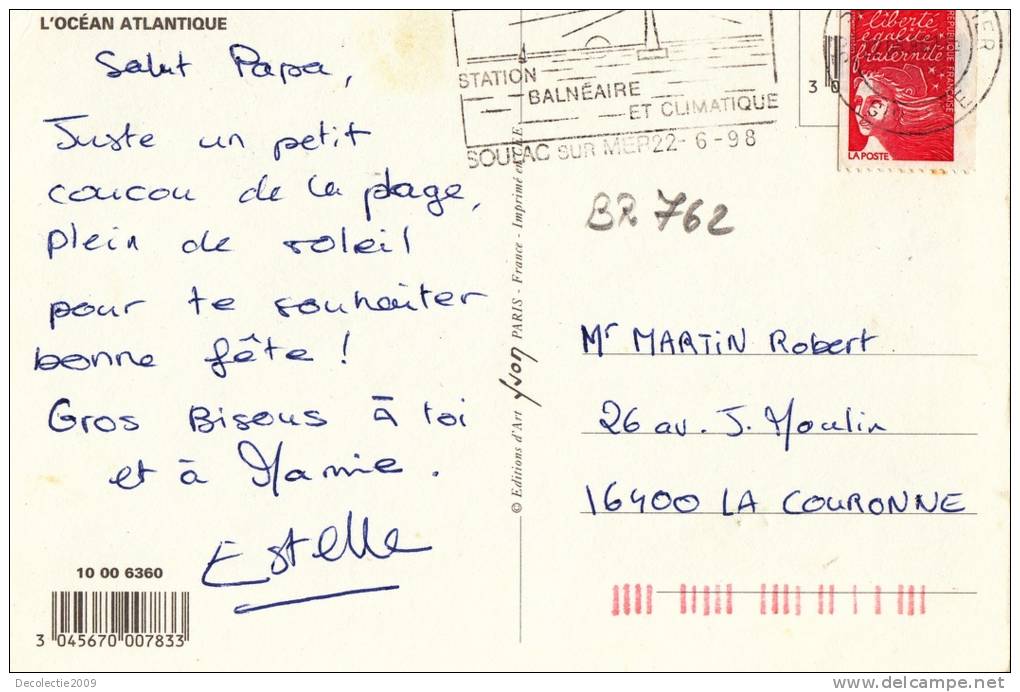 L'OCÉAN ATLANTIQUE
Salut Papa,
Juste un petit
coucou de la plage,
plein de soleil
pour te souhaiter
bonne fête !
Gros Bisous à toi
et à Mamie.
Estelle
10 00 6360
3 045670 007833
STATION
BALNÉAIRE
ET CLIMATIQUE
SOULAC SUR MER 22-6-98
liberté
égalité
fraternité
RÉPUBLIQUE FRANÇAISE
LA POSTE
3 0
BR 762
© Editions d'Art yvon PARIS - France - Imprimé en
Mr MARTIN Robert
26 av. J. Moulin
16400 LA COURONNE
Decolectie2009
www.delcampe.net